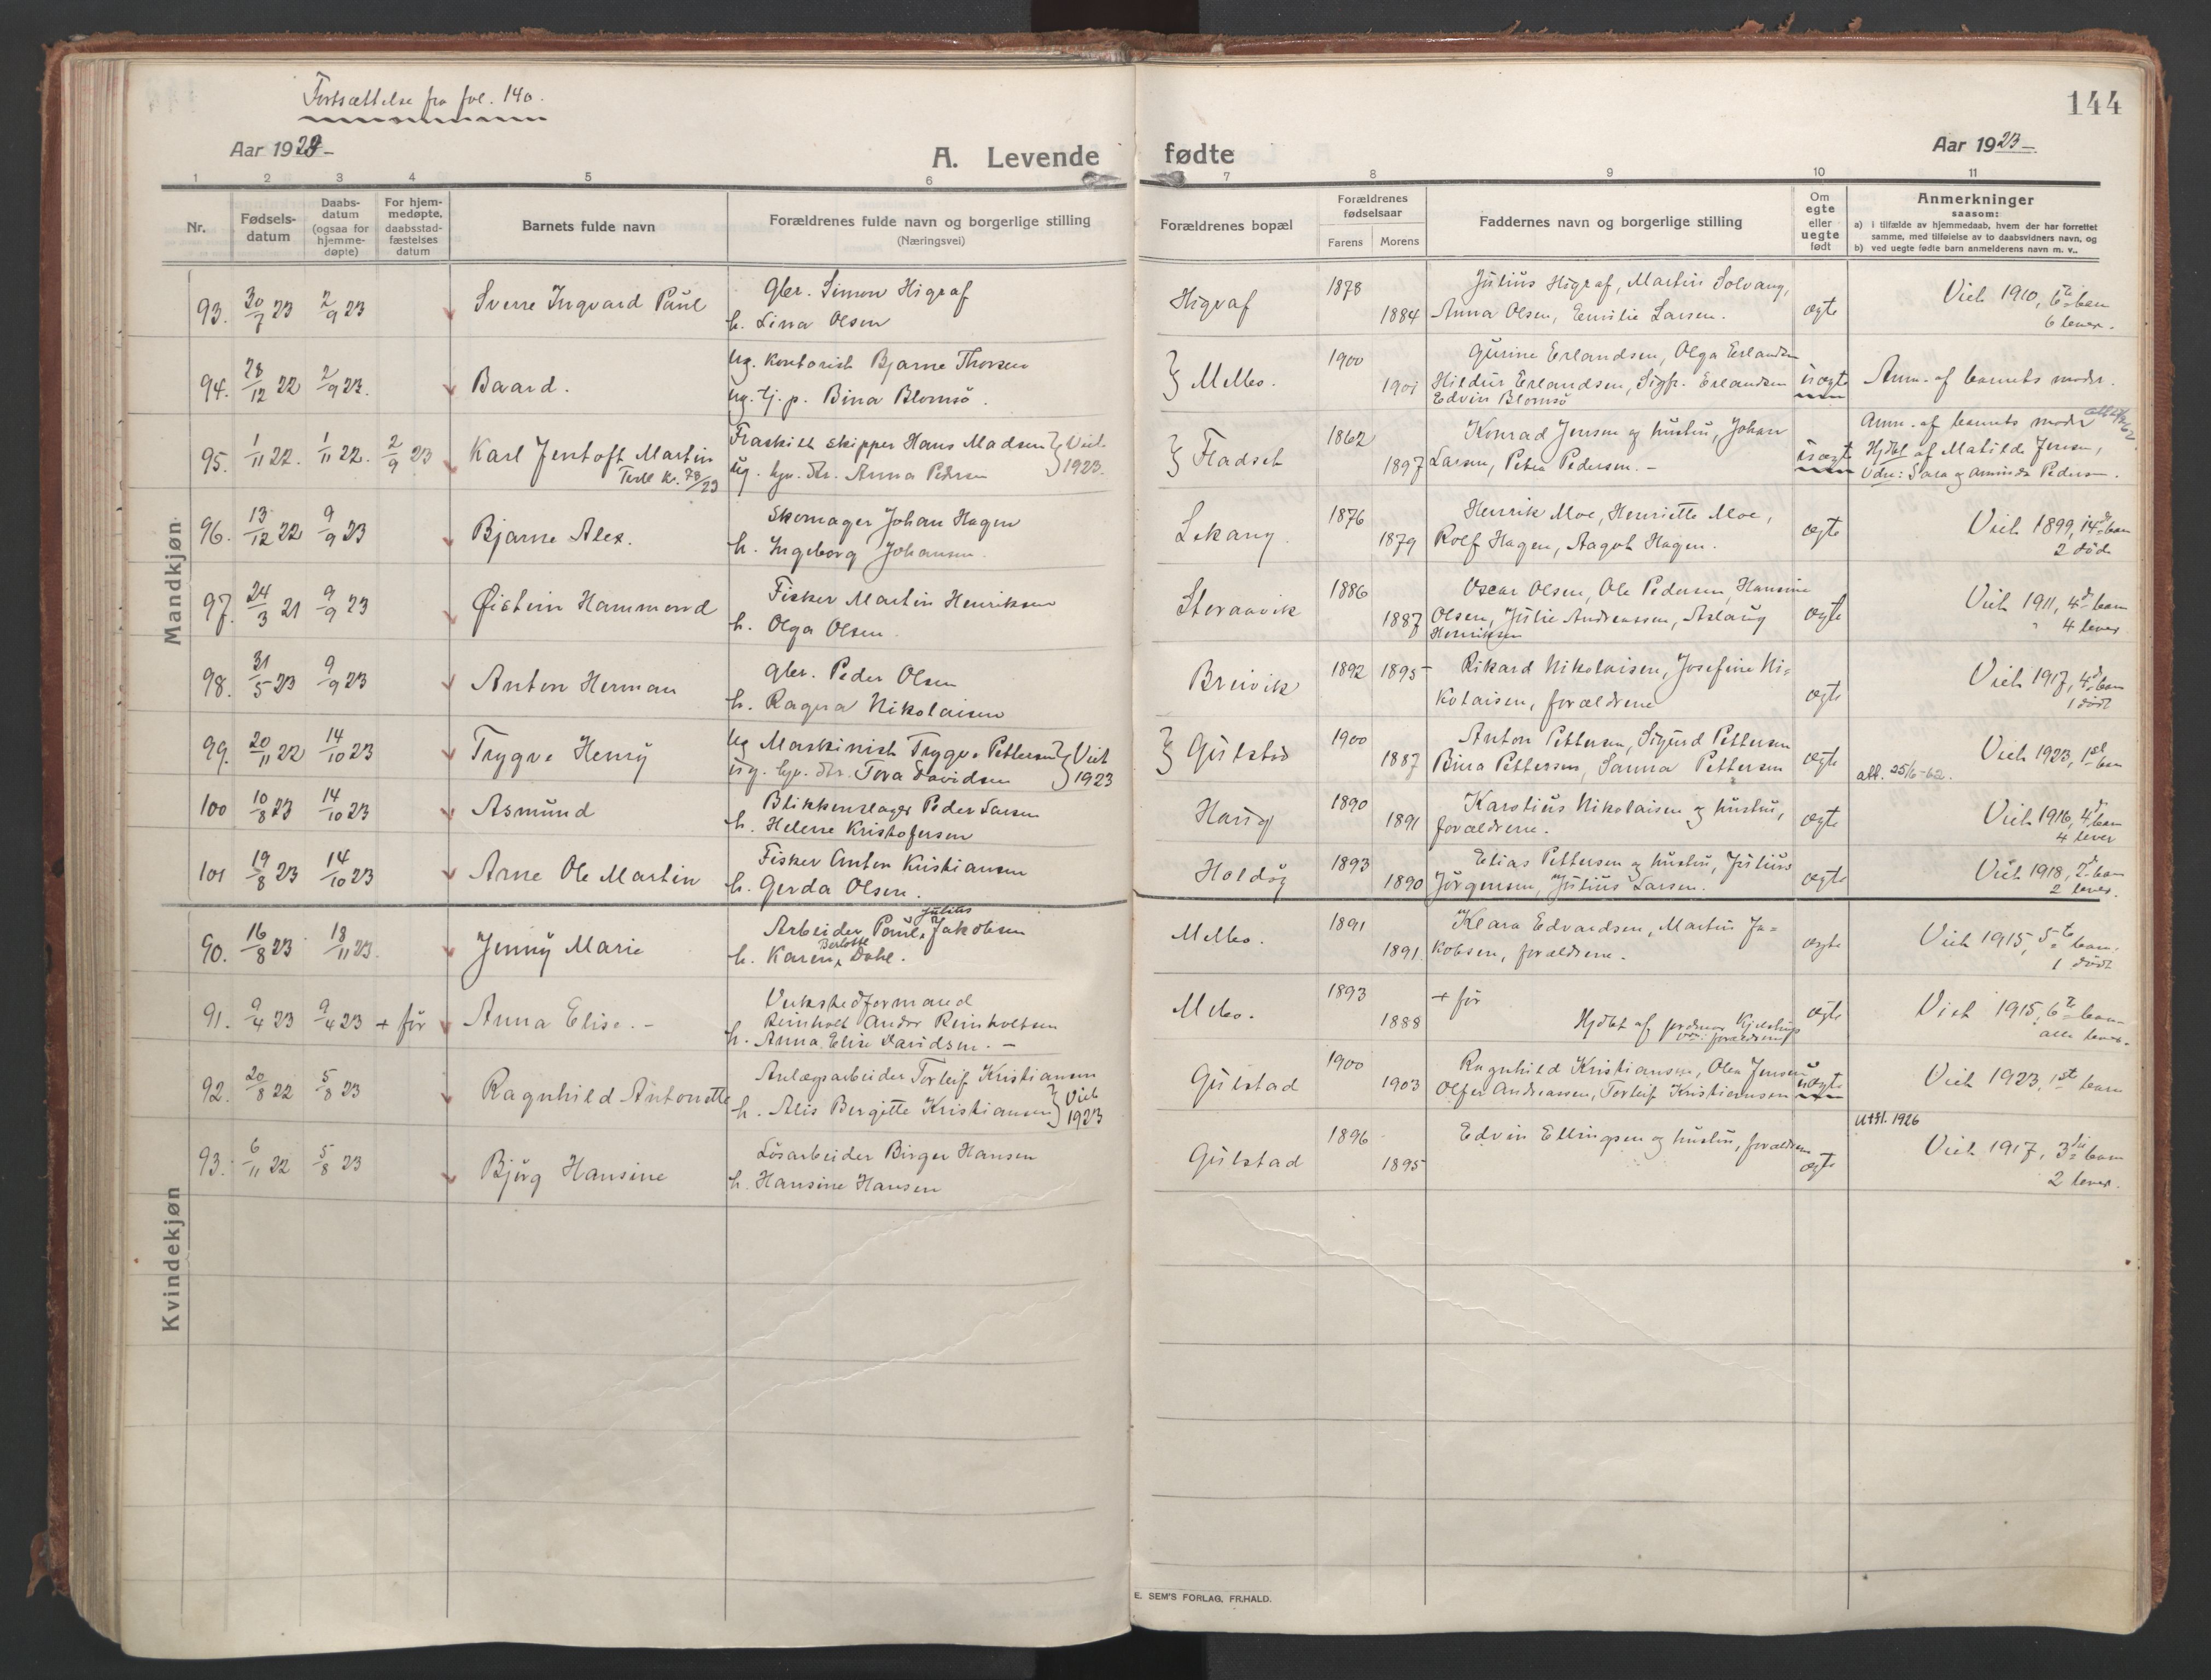 Fortsættelse fra fol. 140.
144
Aar 1923
A. Levende fødte
Aar 1923
1 2 3 4 5 6 7 8 9 10 11
Nr.
Fødsels-
datum
Daabs-
datum
(ogsaa for
hjemme-
døpte)
For hjem-
medøpte,
daabsstad-
fæstelses
datum
Barnets fulde navn
Forældrenes fulde navn og borgerlige stilling
(Næringsvei)
Forældrenes bopæl
Forældrenes
fødselsaar
Farens Morens
Faddernes navn og borgerlige stilling
Om
egte
eller
uegte
født
Anmerkninger
saasom:
a) i tilfælde av hjemmedaab, hvem der har forrettet
samme, med tilføielse av to daabsvidners navn, og
b) ved uegte fødte barn anmelderens navn m. v..
Mandkjøn
93. 30/7 23 2/9 23 Sverre Ingvard Paul
Gbr. Simon Higraf
h. Lina Olsen
Higraf 1878 1884
Julius Higraf, Martin Solvang,
Anna Olsen, Emilie Larsen.
ægte
Viet 1910, 6te barn
6 lever.
94. 28/12 22 2/9 23. Baard.
Ug. Kontorist Bjarne Thorsen
ug. tj. p. Bina Blomsö.
Melbo. 1900 1901
Gurine Erlandsen, Olga Erlandsen
Hildur Erlandsen, Sigfr. Erlandsen
Edvin Blomsö
uægte
Anm. af barnets moder.
95. 1/11 22. 1/11 22. 2/9 23 Karl Jentoft Martin
Fraskilt skipper Hans Madsen
ug. hjv. dtr. Anna Pedersen
Viet
1923.
Fladset 1862 1897
Konrad Jensen og hustru, Johan
Larsen, Petra Pedersen. -
uægte
Anm. af barnets moder
Hjdbt af Matilde Jensen,
Vdn: Sara og Aminda Pedersen.
96. 13/12 22 9/9 23 Bjarne Alex.
Skomager Johan Hagen
h. Ingeborg Johansen.
Lekang. 1876 1879
Henrik Moe, Henriette Moe,
Rolf Hagen, Aagot Hagen.
ægte
Viet 1899, 14de barn
2 död
97. 24/3 21 9/9 23 Øistein Hammond
Fisker Martin Henriksen
h. Olga Olsen.
Steraavik 1886 1887
Oscar Olsen, Ole Pedersen, Hansine
Olsen, Julie Andreassen, Aslaug
Henriksen
ægte
Viet 1911, 4de barn
4 lever
98. 31/5 23 9/9 23 Anton Herman
Gbr. Peder Olsen
h. Ragna Nikolaisen
Breivik 1892 1895
Rikard Nikolaisen, Josefine Ni-
kolaisen, forældrene
ægte
Viet 1917, 4de barn
1 död
99. 20/11 22 14/10 23 Trygve Henry
Ug Maskinist Trygve Pettersen
ug. hjv. dtr. Tova Davidsen
Viet
1923
Gulstad 1900 1887
Anton Pettersen, Sigurd Pettersen
Bina Pettersen, Sanna Pettersen
ægte
att. 25/6-62.
Viet 1923, 1ste barn
100 10/8 23 14/10 23 Asmund
Blikkenslager Peder Larsen
h. Helene Kristofersen
Haug 1890 1891
Karolius Nikolaisen og hustru,
forældrene.
ægte
Viet 1916, 4de barn
4 lever
101 19/8 23 14/10 23 Arne Ole Martin
Fisker Anton Kristiansen
h. Gerda Olsen.
Haldög 1893 1890
Elias Pettersen og hustru, Julius
Jörgensen, Julius Larsen.
ægte
Viet 1918, 2det barn
2 lever.
Kvindekjøn
90. 16/8 23 18/11 23. Jenny Marie
Arbeider Paul Julius Jakobsen
h. Karen Berlotte Dahl.
Melbo. 1891 1891.
Klara Edvardsen, Martin Ja-
kobsen, forældrene.
ægte
Viet 1915, 5te barn.
1 död
91. 9/4 23 9/4 23 + för Anna Elise. -
Verkstedformand
Reinholt Andor Reinholtsen
h. Anna Elise Davidsen. -
Melbo. 1893 1888
+ för
Hjdbt af jordmor Kjelstrup
Vdn: forældrene
ægte
Viet 1915, 6te barn
alle lever.
92. 20/8 22 5/8 23 Ragnhild Antonette
Anlægsarbeider Torleif Kristiansen
h. Alis Bergitte Kristiansen
Viet
1923
Gulstad 1900 1903
Ragnhild Kristiansen, Olea Jensen
Olfer Andreassen, Torleif Kristiansen
uægte
Viet 1923, 1ste barn
93. 6/11 22 5/8 23 Bjørg Hansine
Lösarbeider Birger Hansen
h. Hansine Hansen
Gulstad 1896 1895
Edvin Ellingsen og hustru, forældrene
ægte
Utfl. 1926
Viet 1917, 3die barn
2 lever.
E. SEM'S FORLAG, FR.HALD.